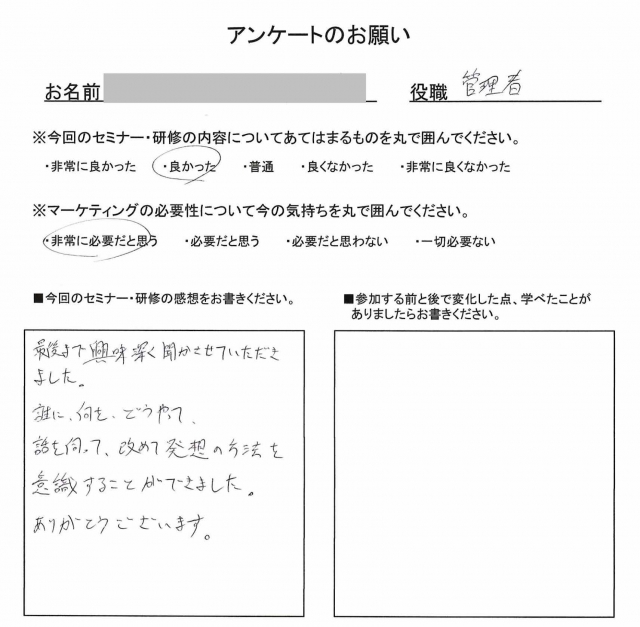 アンケートのお願い
お名前
役職 管理者
※今回のセミナー・研修の内容についてあてはまるものを丸で囲んでください。
・非常に良かった ・良かった ・普通 ・良くなかった ・非常に良くなかった
※マーケティングの必要性について今の気持ちを丸で囲んでください。
・非常に必要だと思う ・必要だと思う ・必要だと思わない ・一切必要ない
■今回のセミナー・研修の感想をお書きください。
最後まで興味深く聞かさせていただき
ました。
誰に、何を、どうやって、
話を伺って、改めて発想の方法を
意識することができました。
ありがとうございます。
■参加する前と後で変化した点、学べたことが
ありましたらお書きください。